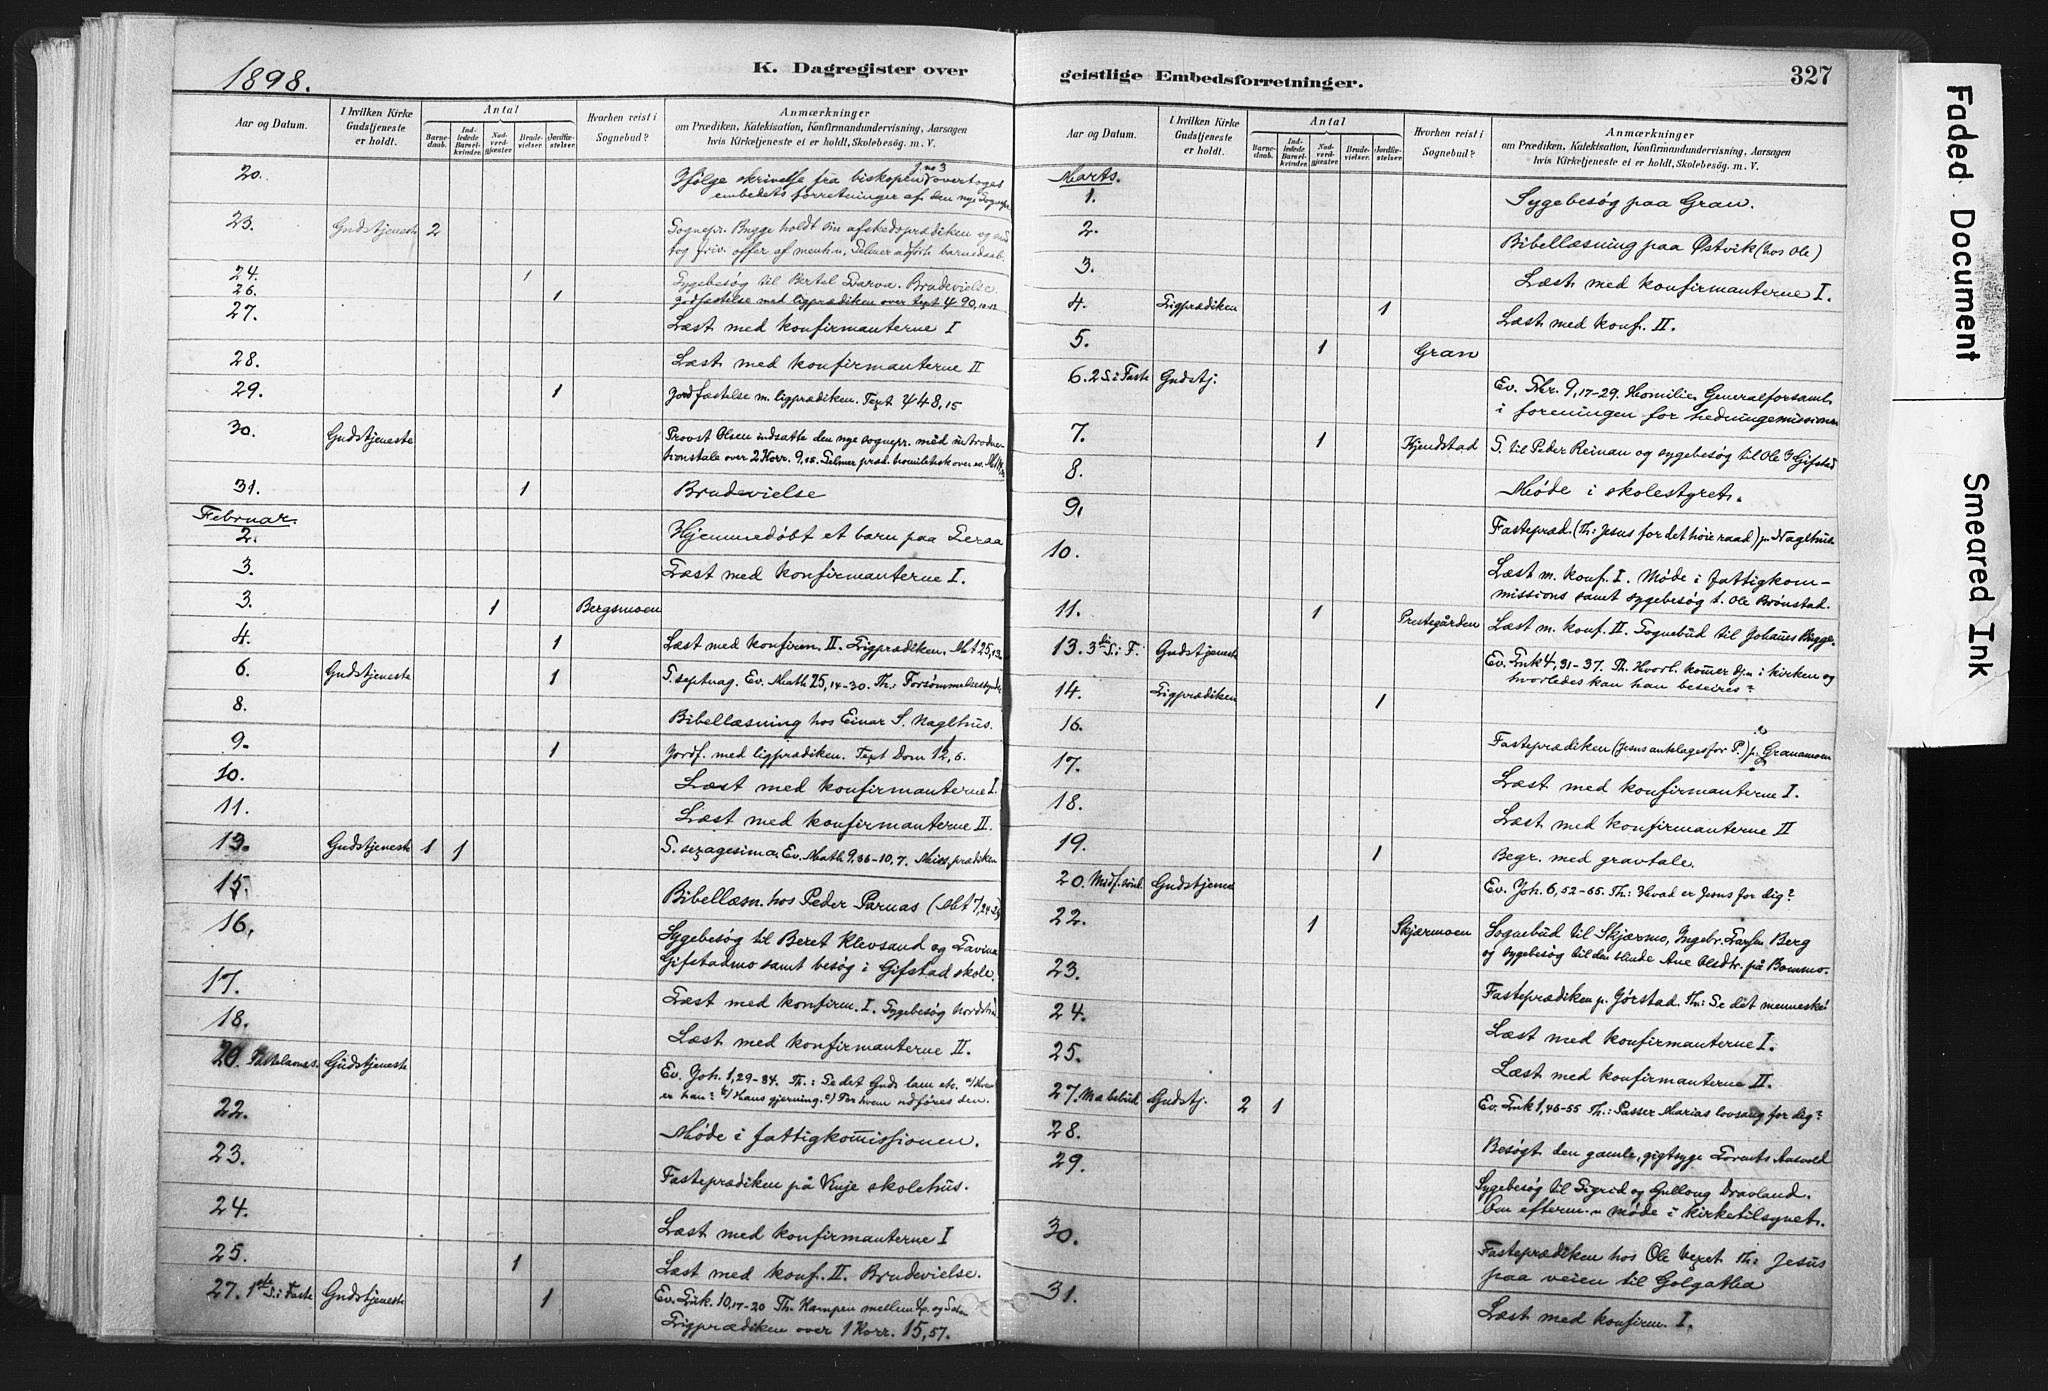 1898.
K. Dagregister over
Aar og Datum.
I hvilken Kirke Gudstjeneste er holdt.
Antal
Barnedaab.
Indledede Barselkvinder.
Nadverdgjæster
Brudevielser.
Jordfæstelser.
Hvorhen reist i Sognebud?
Anmærkninger
om Prædiken, Katekisation, Konfirmandundervisning, Aarsagen
hvis Kirketjeneste ei er holdt, Skolebesøg. m. V.
20. Ifølge skrivelse fra biskopen overtoges
embedets forretninger af den nye Sognepr.
23. Gudstjeneste 2 Sognepr. Bugge holdt sin afskedsprædiken og
tog friv. offer af menh.
24. 1 Sygebesøg til Bertel Brudevielse
26. 1 Jordfæstelse med ligprædiken over text ψ 90, 10-12
27. Læst med konfirmanterne I
28. Læst med konfirmanterne II
29. 1 Jordfæstelse m. ligprædiken. Text ψ 48, 15
30. Gudstjeneste Provst Olsen indsatte den nye sognepr. med introduc-
tionstale over 2 Korr. 9, 15. præd. homiletisk over ev.
31. 1 Brudevielse
Februar
2. Hjemmedøbt et barn paa
3. Læst med konfirmanterne I.
3. 1 Bergsmoen
4. 1 Læst med konfirm. II. Ligprædiken. Mt 25, 13
6. Gudstjeneste 1 S. septuag. Ev. Math 25, 14-30. Th: Forsømmelsessynder
8. Bibellæsning hos Einar S. Naglhus.
9. 1 Jordf. med ligprædiken. Text Dom 12, 6.
10. Læst med konfirmanterne I.
11. Læst med konfirmanterne II.
13. Gudstjeneste 1 1 S. sexagesima. Ev. Math 9, 36-10, 7. Miss. prædiken
15. Bibellæsn. hos Peder Parnas (Mt 7,
16. Sygebesøg til Beret Klevsand og
Gifstadmo samt besøg i Gifstad skole.
17. Læst med konfirm. I. Sygebesøg
18. Læst med konfirmanterne II.
20. Fastelavns. Gudstjeneste Ev. Joh. 1, 29-34. Th.: Se det Guds lam etc. a) Hvem
er han? b) Hans gjerning. c) For hvem udføres den.
22. Møde i fattigkommissionen.
23. Fasteprædiken på Vinje skolehus.
24. Læst med konfirmanterne I
25. 1 Læst med konf. II. Brudevielse.
27. 1ste S. i Faste Gudstjeneste 1 Ev. Luk. 10, 17-20 Th. Kampen mellem og
Ligprædiken over 1 Korr. 15, 57.
geistlige Embedsforretninger.
327
Aar og Datum.
I hvilken Kirke Gudstjeneste er holdt.
Antal
Barnedaab.
Indledede Barselkvinder.
Nadverdgjæster
Brudevielser.
Jordfæstelser.
Hvorhen reist i Sognebud?
Anmærkninger
om Prædiken, Katekisation, Konfirmandundervisning, Aarsagen
hvis Kirketjeneste ei er holdt, Skolebesøg. m. V.
Marts.
1. Sygebesøg paa Gran.
2. Bibellæsning paa Østvik (hos Ole)
3. Læst med konfirmanterne I.
4. Ligprædiken 1 Læst med konf. II.
5. 1 Gran
6. 2 S. i Faste Gudstj. Ev. Mkr. 9, 17-29. Homilie. Generalforsaml.
i foreningen for hedningemissionen
7. 1 Kjendstad S. til Peder Reinan og sygebesøg til Ole Gifstad
8. Møde i skolestyret.
9. Fastepræd. (Th: Jesus for det høie raad) p. Naglhus.
10. Læst m. konf. I. Møde i fattigkom-
missions samt sygebesøg t. Ole Brønstad.
11. 1 Prestegården Læst m. konf. II. Sognebud til Johannes Bugge.
13. 3die S. i F. Gudstjeneste Ev. Luk 4, 31-37. Th. Hvorl. kommer i kirken og
hvorledes kan han beseires?
14. Ligprædiken 1
16. Fasteprædiken (Jesus anklages for P.) p. Granamoen
17. Læst med konfirmanterne I.
18. Læst med konfirmanterne II
19. 1 Begr. med gravtale.
20. Midf. sönd. Gudstjenest Ev. Joh. 6, 52-65. Th: Hvad er Jesus for dig?
22. 1 Skjærmoen Sognebud til Skjærmo, Ingebr. Larsen Berg
og sygebesøg til den blinde Ane Olsdtr. på Bommo.
23. Fasteprædiken p. Gørstad. Th: Se det menneske!
24. Læst med konfirmanterne I.
25. Læst med konfirmanterne II.
27. Mabebud. Gudstj. 2 1 Ev. Luk 1, 46-55 Th: Passer Marias lovsang for dig?
28. Besøgt den gamle, gigtsyge Lorents
29. Sygebesøg til Sigrid og Gullaug Dravland.
Om efterm. møde i kirketilsynet.
30. Fasteprædiken hos Ole Th: Jesus
paa veien til Golgatha
31. Læst med konfirm. I.
Faded Document
Smeared Ink